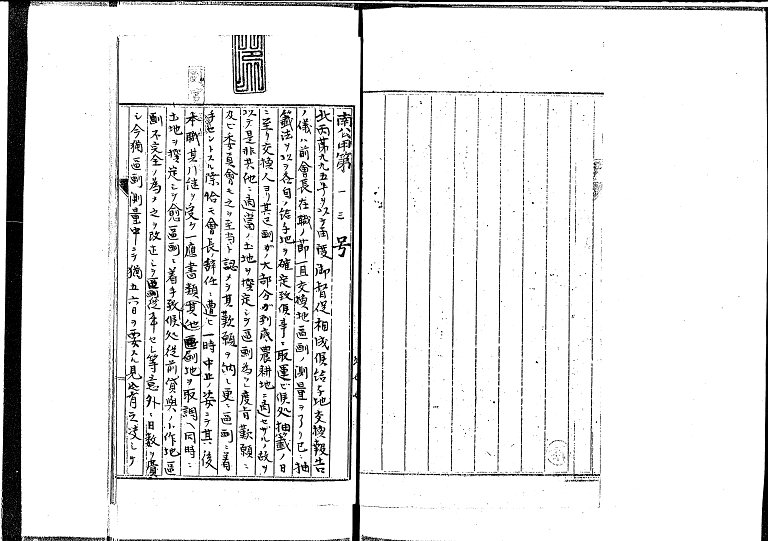 南公甲第一三号
北丙第九九五号ヲ以テ再度御督促相成候給与地交換報告
ノ儀ハ前會長在職ノ節一旦交換地區劃ノ測量ヲ了リ已ニ抽
籤法ヲ以テ各自ノ給与地ヲ確定致候事ニ取運ビ候処抽籤ノ日
ニ至リ交換人ヨリ其区劃ガ大部分ガ到底農耕地ニ適セザルノ故ヲ
以テ是非共他ニ適當ノ土地ヲ撰定シテ區劃為シ度旨歎願ニ
及ビ委員會モ之ヲ至当ト認メテ其歎願ヲ納レ更ニ區劃ニ着
手セントスル際恰モ會長ノ辞任ニ遭ヒ一時中止ノ姿ニテ其後
本職其引継ヲ受ケ一應書類其他區劃地ヲ取調ベ同時ニ
土地ヲ撰定シテ愈區劃ニ着手致候処従前貸與ノ小作地區
劃不完全ノ為メ之ヲ改正シテ區劃セシ等意外ニ日数ヲ費
シ今猶區劃測量中ニテ猶五六日ヲ要スル見込有之